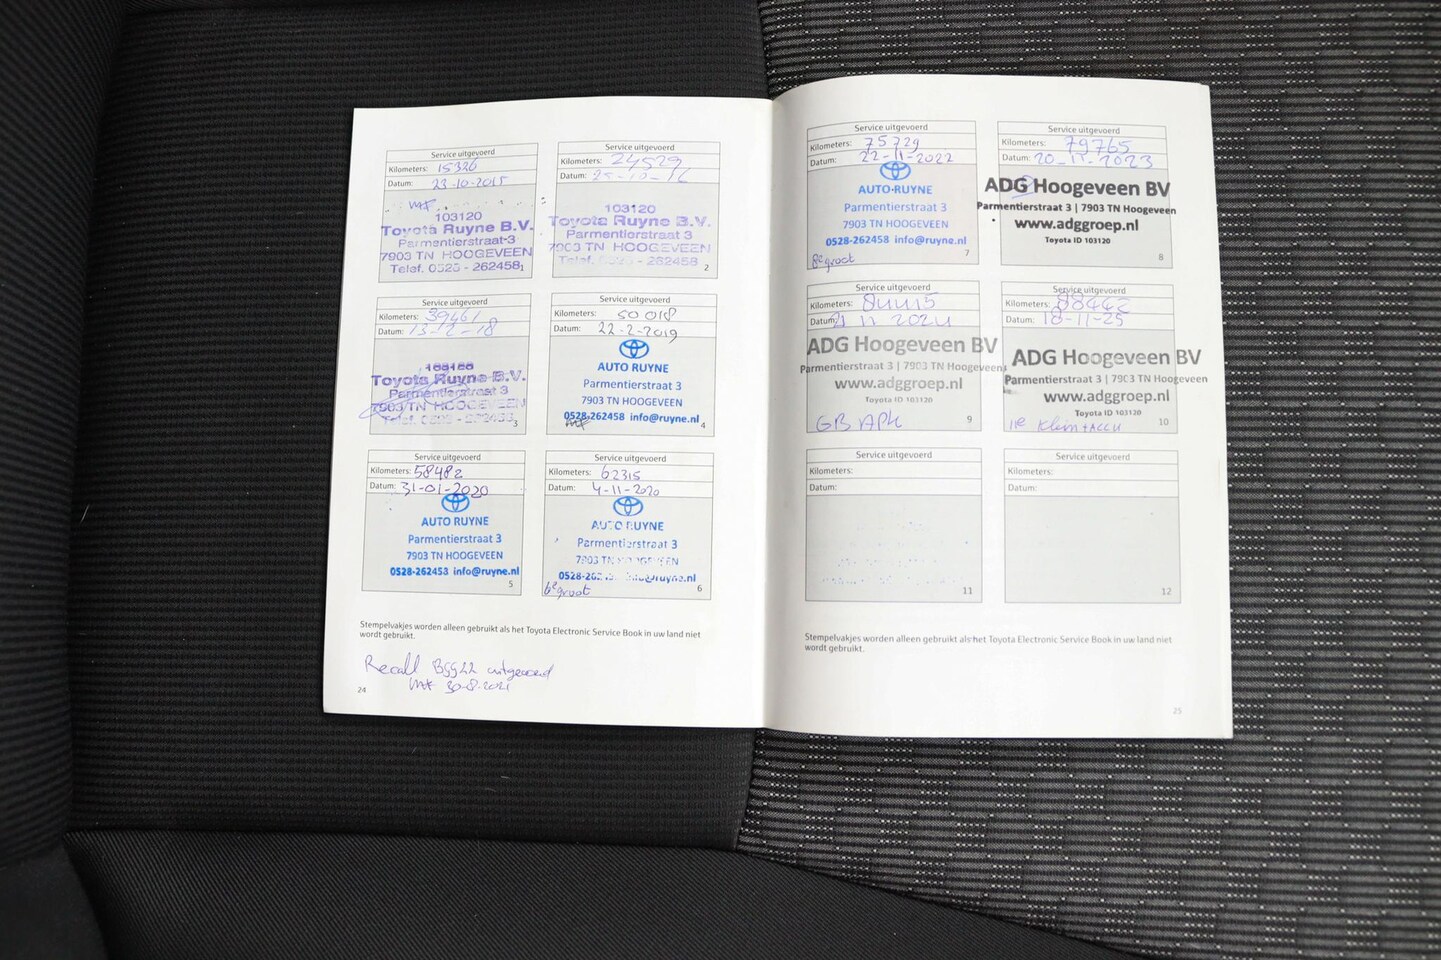 Service uitgevoerd
Kilometers: 15326
Datum: 23-10-2015
103120
Toyota Ruyne B.V.
Parmentierstraat 3
7903 TN HOOGEVEEN
Telef. 0528 - 262458
1
Service uitgevoerd
Kilometers: 24529
Datum:
103120
Toyota Ruyne B.V.
Parmentierstraat 3
7903 TN HOOGEVEEN
Telef. 0528 - 262458
2
Service uitgevoerd
Kilometers: 39461
Datum: 13-2-18
Toyota Ruyne B.V.
Parmentierstraat 3
7903 TN HOOGEVEEN
3
Service uitgevoerd
Kilometers: 50018
Datum: 22-2-2019
AUTO RUYNE
Parmentierstraat 3
7903 TN HOOGEVEEN
0528-262458 info@ruyne.nl
4
Service uitgevoerd
Kilometers: 58482
Datum: 31-01-2020
AUTO RUYNE
Parmentierstraat 3
7903 TN HOOGEVEEN
0528-262453 info@ruyne.nl
5
Service uitgevoerd
Kilometers: 62315
Datum: 4-11-2020
AUTO RUYNE
Parmentierstraat 3
7903 TN HOOGEVEEN
6e groot
6
Stempelvakjes worden alleen gebruikt als het Toyota Electronic Service Book in uw land niet
wordt gebruikt.
Recall BGG22 uitgevoerd
30-8-2021
24
Service uitgevoerd
Kilometers: 75729
Datum: 22-11-2022
AUTO RUYNE
Parmentierstraat 3
7903 TN HOOGEVEEN
0528-262458 info@ruyne.nl
7
8e groot
Service uitgevoerd
Kilometers: 79765
Datum: 20-11-2023
ADG Hoogeveen BV
Parmentierstraat 3 | 7903 TN Hoogeveen
www.adggroep.nl
Toyota ID 103120
8
Service uitgevoerd
Kilometers: 84415
Datum: 21 11 2024
ADG Hoogeveen BV
Parmentierstraat 3 | 7903 TN Hoogeveen
www.adggroep.nl
Toyota ID 103120
9
GB APK
Service uitgevoerd
Kilometers: 88442
Datum: 18-11-25
ADG Hoogeveen BV
Parmentierstraat 3 | 7903 TN Hoogeveen
www.adggroep.nl
Toyota ID 103120
10
11e klein + accu
Service uitgevoerd
Kilometers:
Datum:
11
Service uitgevoerd
Kilometers:
Datum:
12
Stempelvakjes worden alleen gebruikt als het Toyota Electronic Service Book in uw land niet
wordt gebruikt.
25